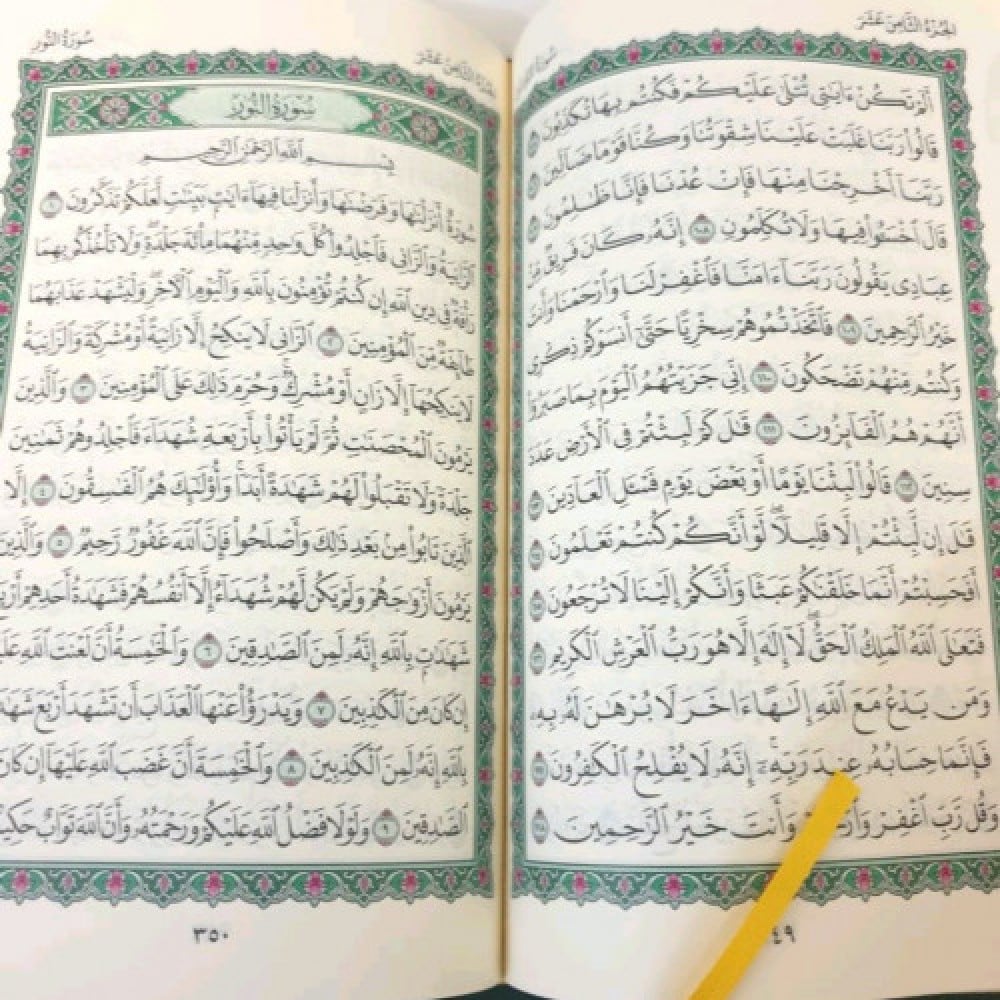 الجُزْءُ الثَّامِنَ عَشَرَ
أَلَمْ تَكُنْ ءَايَٰتِى تُتْلَىٰ عَلَيْكُمْ فَكُنتُم بِهَا تُكَذِّبُونَ
قَالُوا۟ رَبَّنَا غَلَبَتْ عَلَيْنَا شِقْوَتُنَا وَكُنَّا قَوْمًا ضَآلِّينَ
رَبَّنَآ أَخْرِجْنَا مِنْهَا فَإِنْ عُدْنَا فَإِنَّا ظَٰلِمُونَ
قَالَ ٱخْسَـُٔوا۟ فِيهَا وَلَا تُكَلِّمُونِ ١٠٨ إِنَّهُۥ كَانَ فَرِيقٌ مِّنْ
عِبَادِى يَقُولُونَ رَبَّنَآ ءَامَنَّا فَٱغْفِرْ لَنَا وَٱرْحَمْنَا وَأَنتَ
خَيْرُ ٱلرَّٰحِمِينَ ١٠٩ فَٱتَّخَذْتُمُوهُمْ سِخْرِيًّا حَتَّىٰٓ أَنسَوْكُمْ ذِكْرِى
وَكُنتُم مِّنْهُمْ تَضْحَكُونَ ١١٠ إِنِّى جَزَيْتُهُمُ ٱلْيَوْمَ بِمَا صَبَرُوٓا۟
أَنَّهُمْ هُمُ ٱلْفَآئِزُونَ ١١١ قَٰلَ كَمْ لَبِثْتُمْ فِى ٱلْأَرْضِ عَدَدَ
سِنِينَ ١١٢ قَالُوا۟ لَبِثْنَا يَوْمًا أَوْ بَعْضَ يَوْمٍ فَسْـَٔلِ ٱلْعَآدِّينَ
قَٰلَ إِن لَّبِثْتُمْ إِلَّا قَلِيلًا لَّوْ أَنَّكُمْ كُنتُمْ تَعْلَمُونَ
أَفَحَسِبْتُمْ أَنَّمَا خَلَقْنَٰكُمْ عَبَثًا وَأَنَّكُمْ إِلَيْنَا لَا تُرْجَعُونَ
فَتَعَٰلَى ٱللَّهُ ٱلْمَلِكُ ٱلْحَقُّ لَآ إِلَٰهَ إِلَّا هُوَ رَبُّ ٱلْعَرْشِ ٱلْكَرِيمِ
وَمَن يَدْعُ مَعَ ٱللَّهِ إِلَٰهًا ءَاخَرَ لَا بُرْهَٰنَ لَهُۥ بِهِۦ
فَإِنَّمَا حِسَابُهُۥ عِندَ رَبِّهِۦٓ إِنَّهُۥ لَا يُفْلِحُ ٱلْكَٰفِرُونَ
وَقُل رَّبِّ ٱغْفِرْ وَأَنتَ خَيْرُ ٱلرَّٰحِمِينَ
٤٩
الجُزْءُ الثَّامِنَ عَشَرَ
سُورَةُ النُّورِ
سُورَةُ النُّورِ
بِسْمِ ٱللَّهِ ٱلرَّحْمَٰنِ ٱلرَّحِيمِ
سُورَةٌ أَنزَلْنَٰهَا وَفَرَضْنَٰهَا وَأَنزَلْنَا فِيهَآ ءَايَٰتٍۭ بَيِّنَٰتٍ لَّعَلَّكُمْ تَذَكَّرُونَ ١
ٱلزَّانِيَةُ وَٱلزَّانِى فَٱجْلِدُوا۟ كُلَّ وَٰحِدٍ مِّنْهُمَا مِا۟ئَةَ جَلْدَةٍ وَلَا تَأْخُذْكُم بِهِمَا
رَأْفَةٌ فِى دِينِ ٱللَّهِ إِن كُنتُمْ تُؤْمِنُونَ بِٱللَّهِ وَٱلْيَوْمِ ٱلْءَاخِرِ وَلْيَشْهَدْ عَذَابَهُمَا
طَآئِفَةٌ مِّنَ ٱلْمُؤْمِنِينَ ٢ ٱلزَّانِى لَا يَنكِحُ إِلَّا زَانِيَةً أَوْ مُشْرِكَةً وَٱلزَّانِيَةُ
لَا يَنكِحُهَآ إِلَّا زَانٍ أَوْ مُشْرِكٌ وَحُرِّمَ ذَٰلِكَ عَلَى ٱلْمُؤْمِنِينَ ٣ وَٱلَّذِينَ
يَرْمُونَ ٱلْمُحْصَنَٰتِ ثُمَّ لَمْ يَأْتُوا۟ بِأَرْبَعَةِ شُهَدَآءَ فَٱجْلِدُوهُمْ ثَمَٰنِينَ
جَلْدَةً وَلَا تَقْبَلُوا۟ لَهُمْ شَهَٰدَةً أَبَدًا وَأُو۟لَٰٓئِكَ هُمُ ٱلْفَٰسِقُونَ ٤ إِلَّا
ٱلَّذِينَ تَابُوا۟ مِنۢ بَعْدِ ذَٰلِكَ وَأَصْلَحُوا۟ فَإِنَّ ٱللَّهَ غَفُورٌ رَّحِيمٌ ٥ وَٱلَّذِينَ
يَرْمُونَ أَزْوَٰجَهُمْ وَلَمْ يَكُن لَّهُمْ شُهَدَآءُ إِلَّآ أَنفُسُهُمْ فَشَهَٰدَةُ أَحَدِهِمْ
شَهَٰدَٰتٍۭ بِٱللَّهِ إِنَّهُۥ لَمِنَ ٱلصَّٰدِقِينَ ٦ وَٱلْخَٰمِسَةُ أَنَّ لَعْنَتَ ٱللَّهِ
إِن كَانَ مِنَ ٱلْكَٰذِبِينَ ٧ وَيَدْرَؤُا۟ عَنْهَا ٱلْعَذَابَ أَن تَشْهَدَ أَرْبَعَ
بِٱللَّهِ إِنَّهُۥ لَمِنَ ٱلْكَٰذِبِينَ ٨ وَٱلْخَٰمِسَةَ أَنَّ غَضَبَ ٱللَّهِ عَلَيْهَآ إِن كَانَ
ٱلصَّٰدِقِينَ ٩ وَلَوْلَا فَضْلُ ٱللَّهِ عَلَيْكُمْ وَرَحْمَتُهُۥ وَأَنَّ ٱللَّهَ تَوَّابٌ
٣٥٠